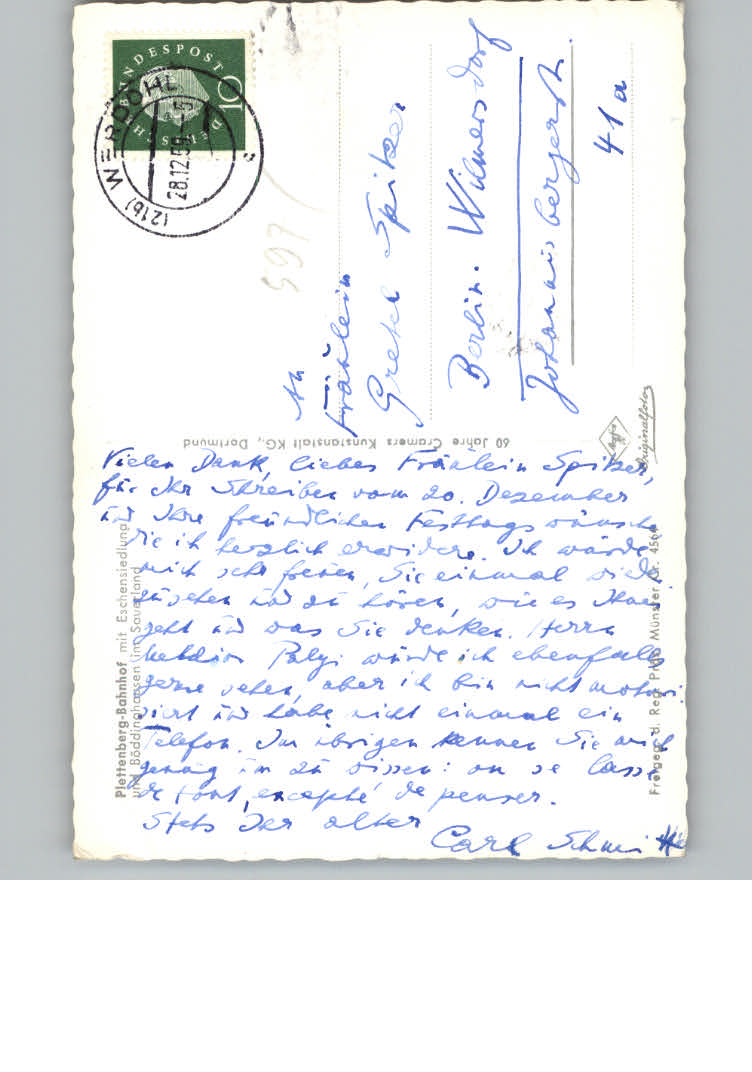 DEUTSCHE BUNDESPOST
10
(21b) WERDOHL
28.12.59
c
597
An
Fräulein
Gretel Spitzer
Berlin. Wilmersdorf
Johannisbergerstr.
41a
60 Jahre Cramers Kunstanstalt KG., Dortmund
Agfa
Originalfoto
Vielen Dank, liebes Fräulein Spitzer,
für Ihr Schreiben vom 20. Dezember
und Ihre freundlichen Festtagswünsche
die ich herzlich erwidere. Ich würde
mich sehr freuen, Sie einmal wieder
zu sehen und zu hören, wie es Ihnen
geht und was Sie denken. Herrn
Melchior Palyi würde ich ebenfalls
gerne sehen, aber ich bin nicht motori-
siert und habe nicht einmal ein
Telefon. Im übrigen kennen Sie mich
genug um zu wissen: on se lasse
de tout, excepté de penser.
Stets Ihr alter
Carl Schmitt
Plettenberg-Bahnhof mit Eschensiedlung
und Böddinghausen im Sauerland
Freigeg. d. Reg. Präs. Münster Nr. 456